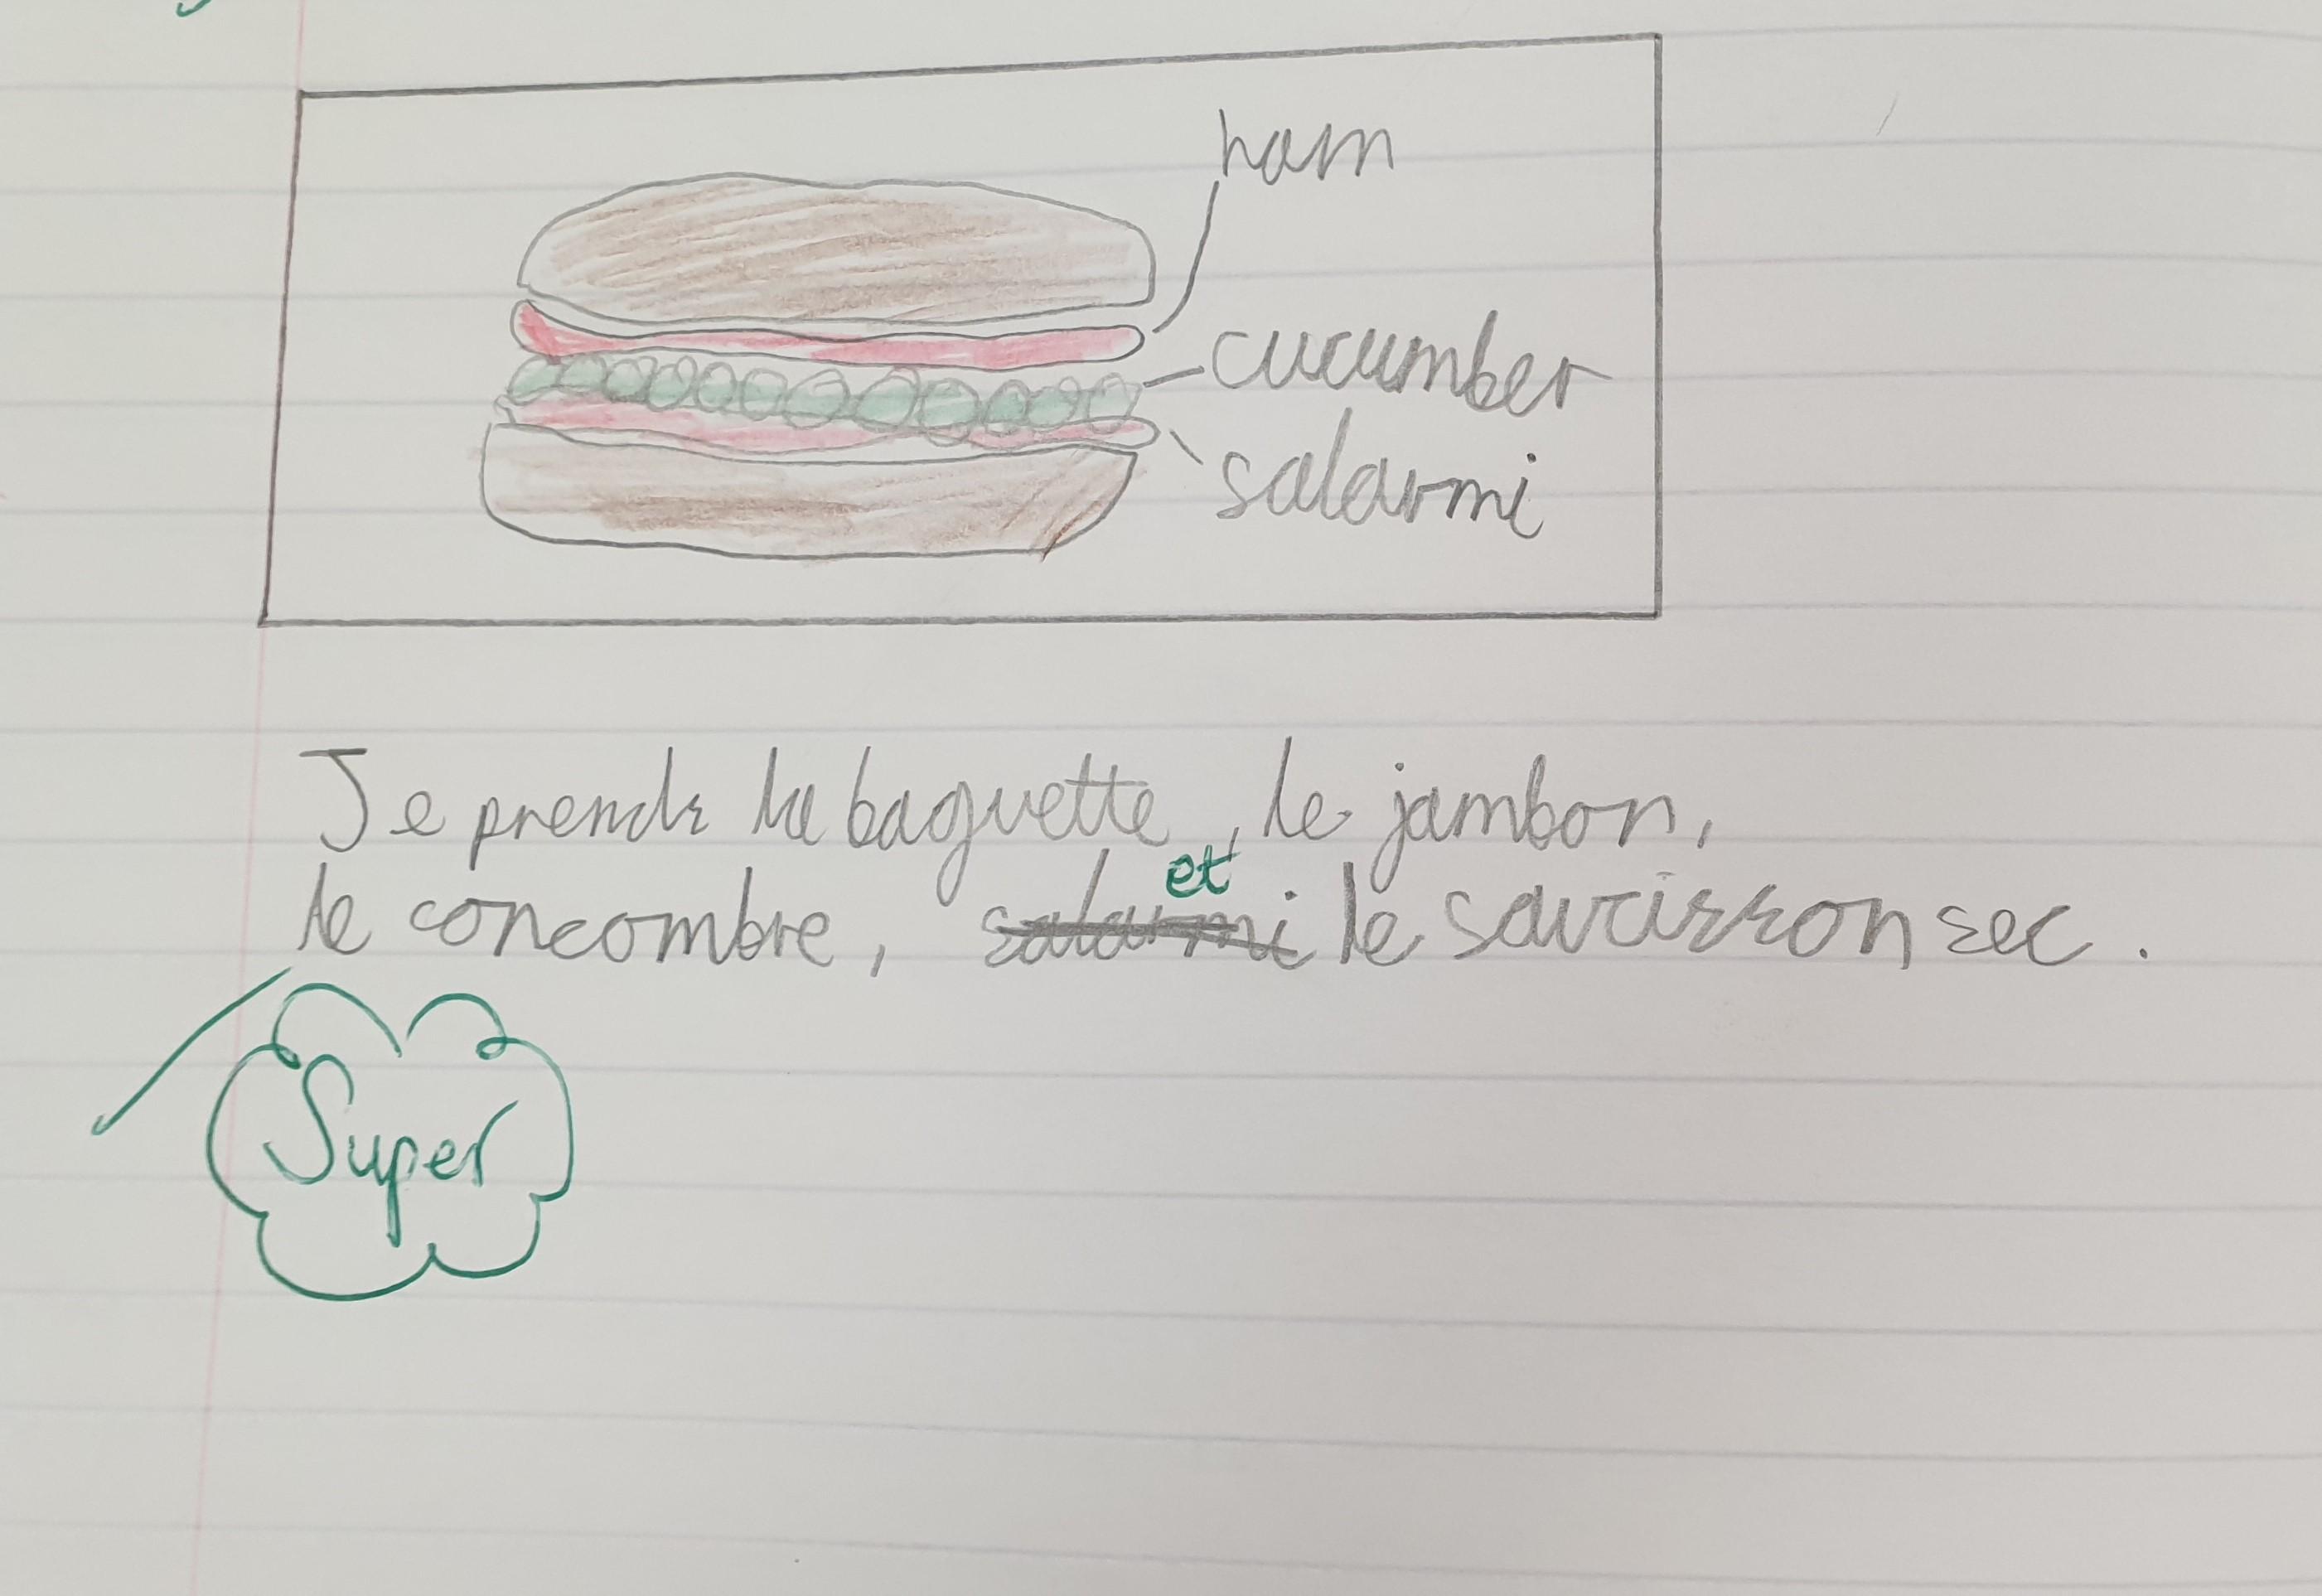 ham
cucumber
salarmi
Je prends la baguette, le jambon,
et
le concombre, salarmi le saucisson sec.
Super